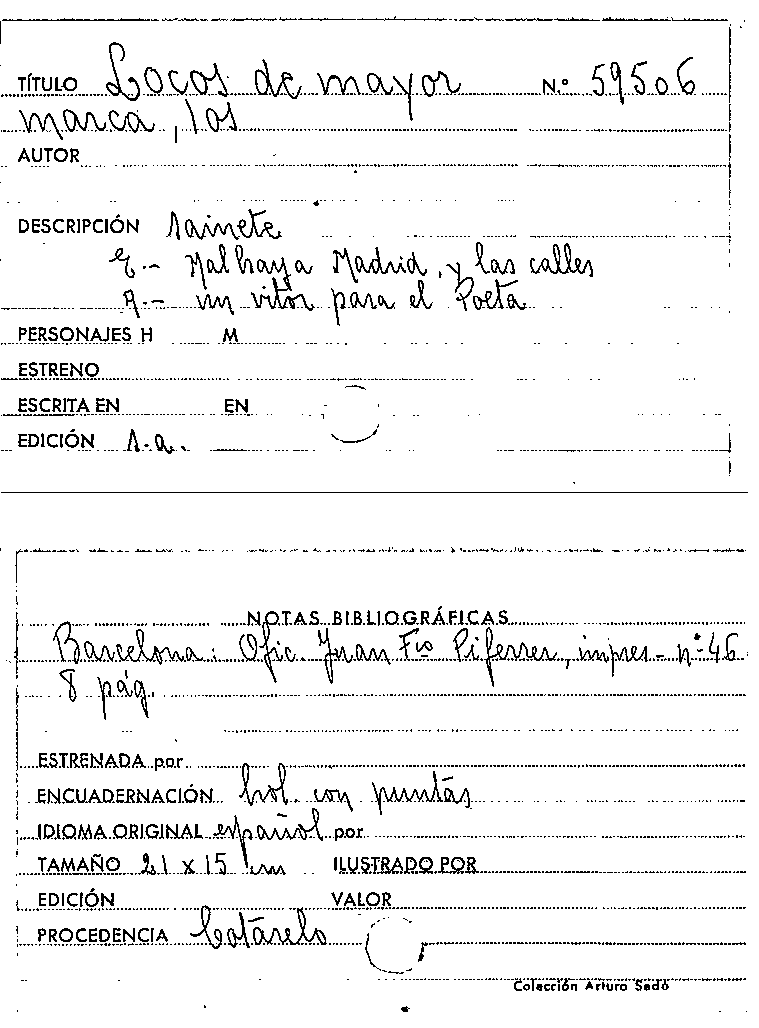 TÍTULO Locos de mayor N.º 59506
marca, los
AUTOR
DESCRIPCIÓN sainete
E.- Malhaya Madrid, y las calles
A.- un vitor para el Poeta
PERSONAJES H M
ESTRENO
ESCRITA EN EN
EDICIÓN s.a.
NOTAS BIBLIOGRÁFICAS
Barcelona: Ofic. Juan Fco Piferrer, impres- nº 46
8 pág.
ESTRENADA por
ENCUADERNACIÓN hol. con puntas
IDIOMA ORIGINAL español por
TAMAÑO 21 x 15 cm ILUSTRADO POR
EDICIÓN VALOR
PROCEDENCIA Cotarelo
Colección Arturo Sedó